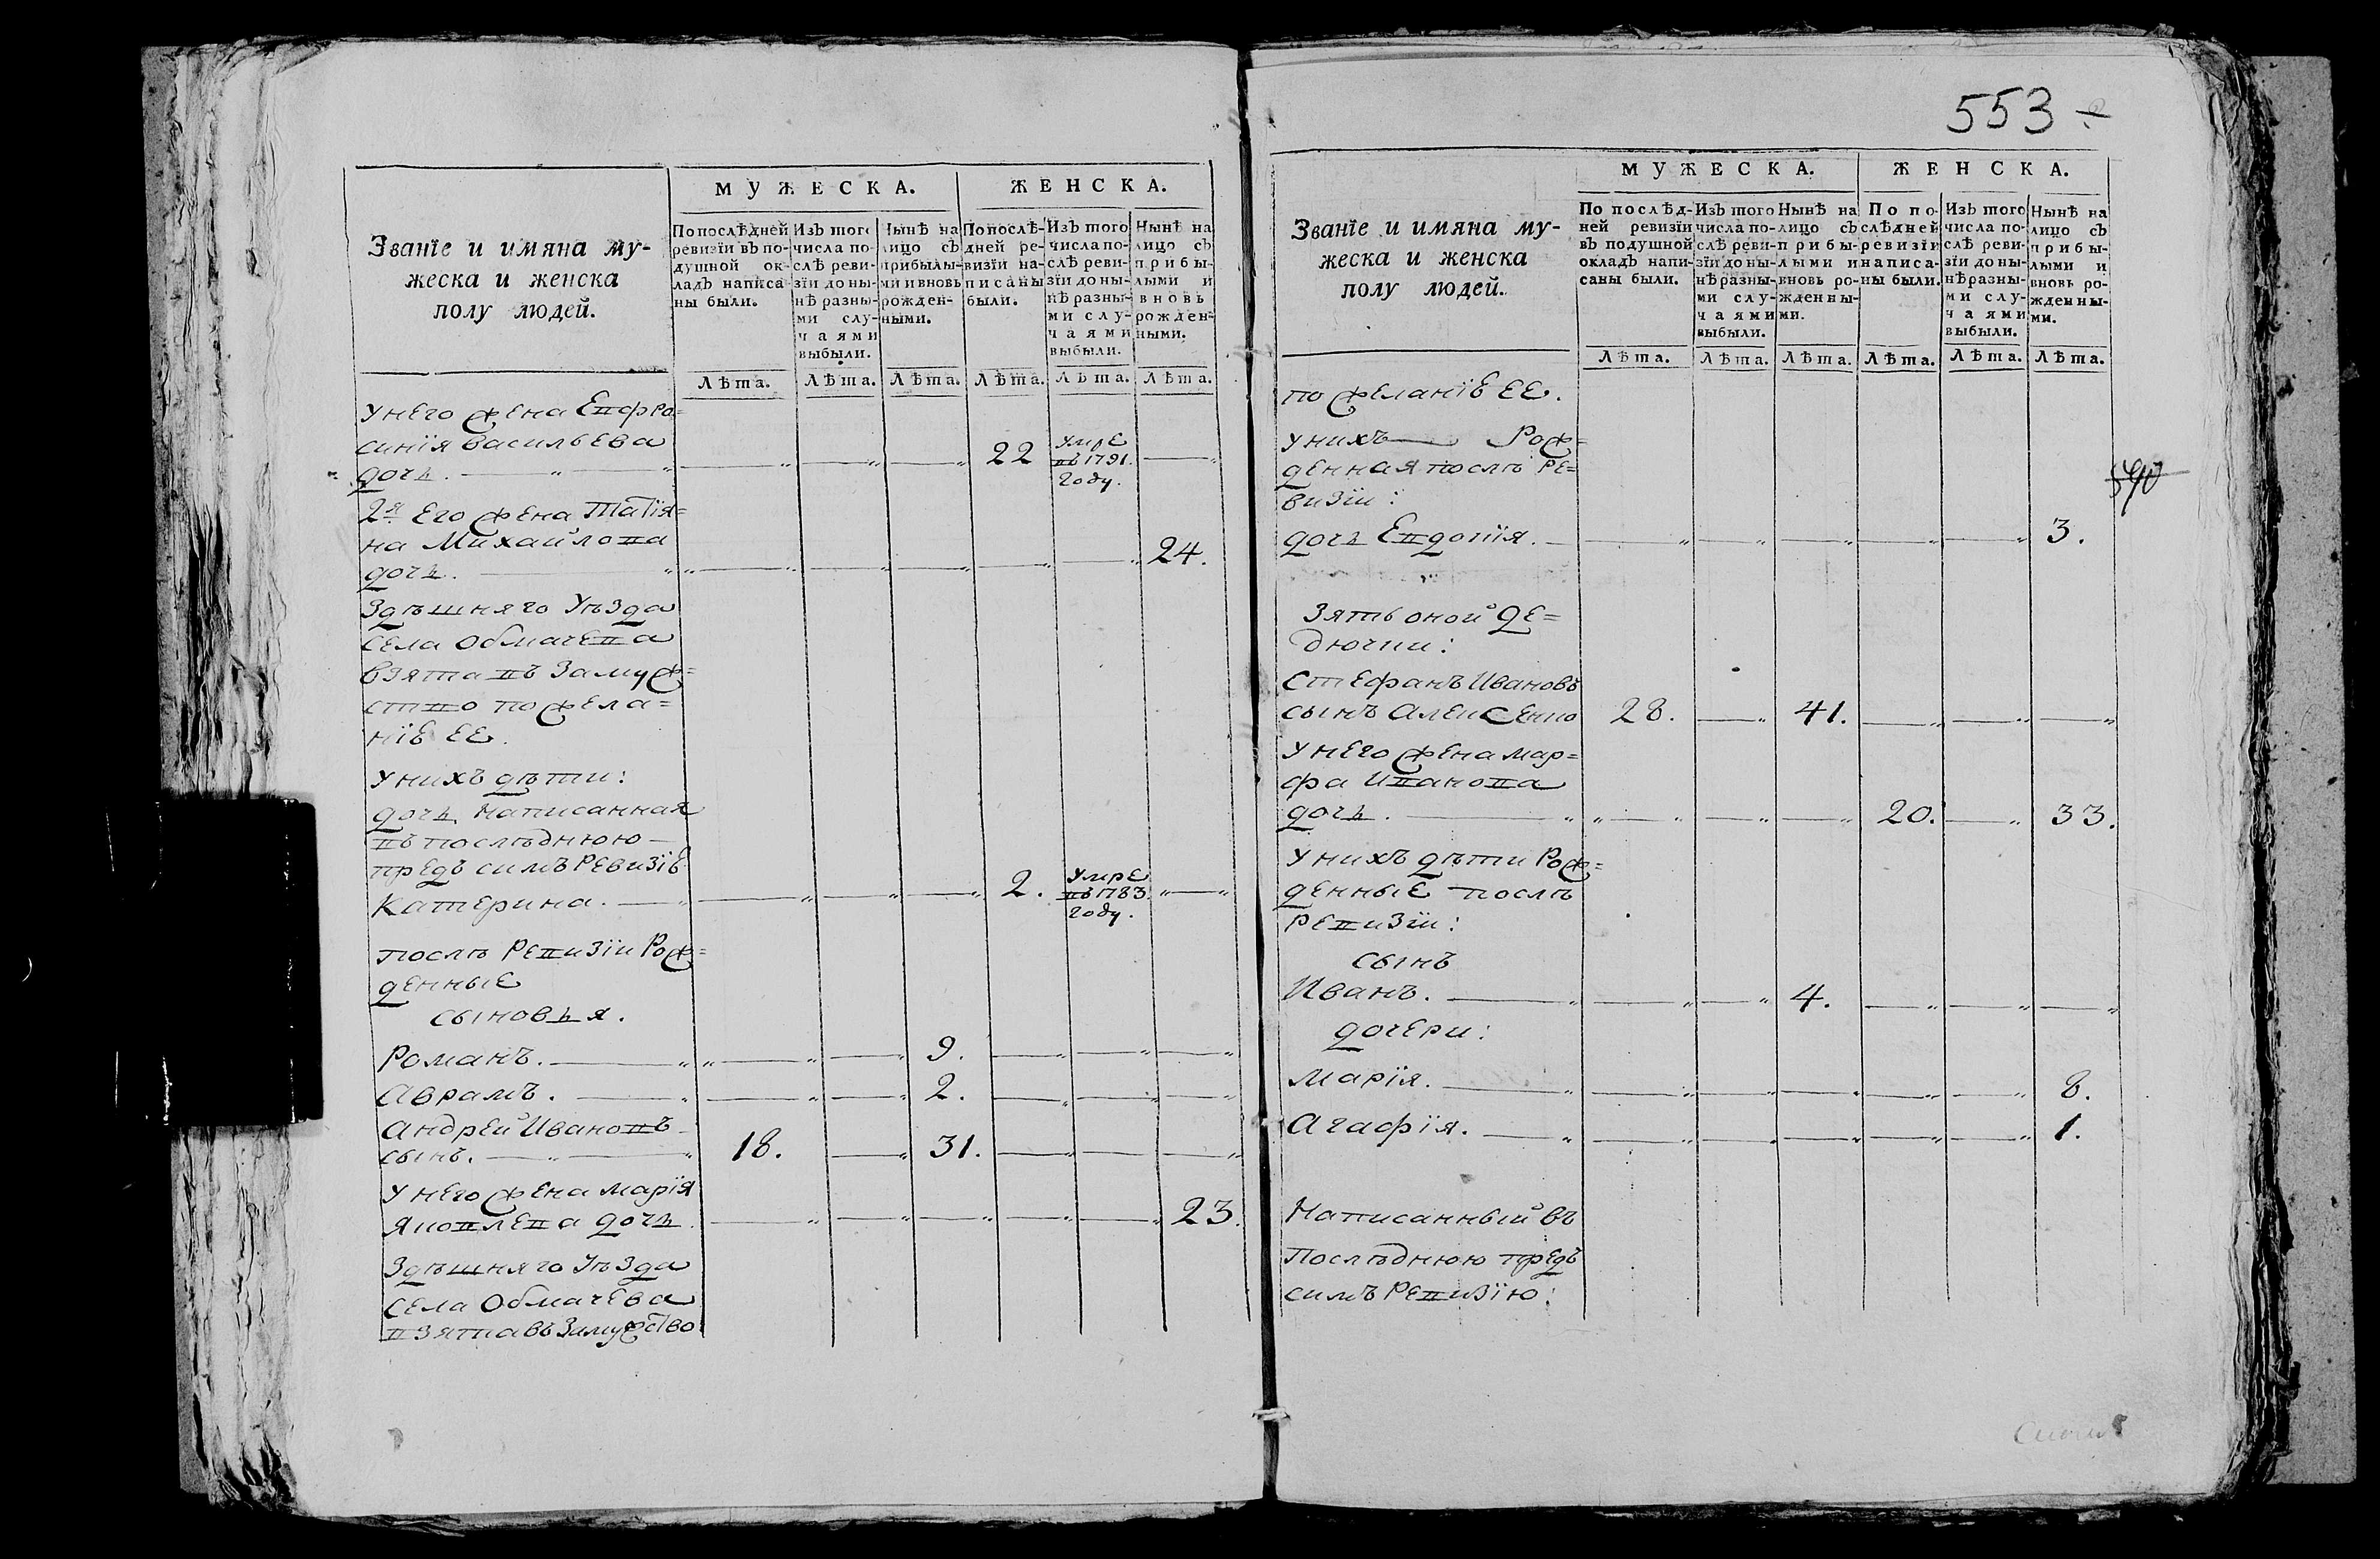 МУЖЕСКА.
ЖЕНСКА.
Званїе и имяна му-
жеска и женска
полу людей.
По послѣдней
ревизїи въ по-
душной ок-
ладъ написа-
ны были.
Изъ того
числа по-
слѣ реви-
зїи до ны-
нѣ разны-
ми слу-
чаями
выбыли.
Нынѣ на
лицо съ
прибылы-
ми и вновь
рожден-
ными.
По послѣ-
дней ре-
визїи на-
писаны
были.
Изъ того
числа по-
слѣ реви-
зїи до ны-
нѣ разны-
ми слу-
чаями
выбыли.
Нынѣ на
лицо съ
прибы-
лыми и
вновь
рожден-
ными.
Лѣта. Лѣта. Лѣта. Лѣта. Лѣта. Лѣта.
У него жена Евфро=
синїя васильева
дочь. 22 умре въ 1791. году.
2я его жена Татїя=
на Михайлова
дочь. 24.
Здѣшняго Уѣзда
села Обмачева
взята въ замуж=
ство по жела=
нїе ее.
У нихъ дѣти:
дочь написанная
въ послѣднюю
предъ симъ ревизїе
Катерина. 2. умре въ 1783. году.
послѣ Ревизїи Рож=
денные
сыновья.
Романъ. 9.
Аврамъ. 2.
Андрей Ивановъ
сынъ. 18. 31.
У него жена Марїя
Яковлева дочь. 23.
Здѣшняго Уѣзда
села Обмачева
взята въ Замужство
553
МУЖЕСКА.
ЖЕНСКА.
Званїе и имяна му-
жеска и женска
полу людей.
По послѣд-
ней ревизїи
въ подушной
окладъ напи-
саны были.
Изъ того
числа по-
слѣ реви-
зїи до ны-
нѣ разны-
ми слу-
чаями
выбыли.
Нынѣ на
лицо съ
прибы-
лыми и
вновь ро-
жденны-
ми.
По по-
слѣдней
ревизїи
написа-
ны были.
Изъ того
числа по-
слѣ реви-
зїи до ны-
нѣ разны-
ми слу-
чаями
выбыли.
Нынѣ на
лицо съ
прибы-
лыми и
вновь ро-
жденны-
ми.
Лѣта. Лѣта. Лѣта. Лѣта. Лѣта. Лѣта.
по желанїе ее.
У нихъ Рож=
денная послѣ ре=
визїи:
дочь Евдокїя. 3.
Зять оной Де=
дючки:
Стефанъ Ивановъ
сынъ Алексенко 28. 41.
У него жена Мар=
фа Иванова
дочь. 20. 33.
У нихъ дѣти Рож=
денные послѣ
Ревизїи:
сынъ
Иванъ. 4.
дочери:
Марїя. 8.
Агафїя. 1.
Написанный въ
Послѣднюю предъ
симъ Ревизїю: